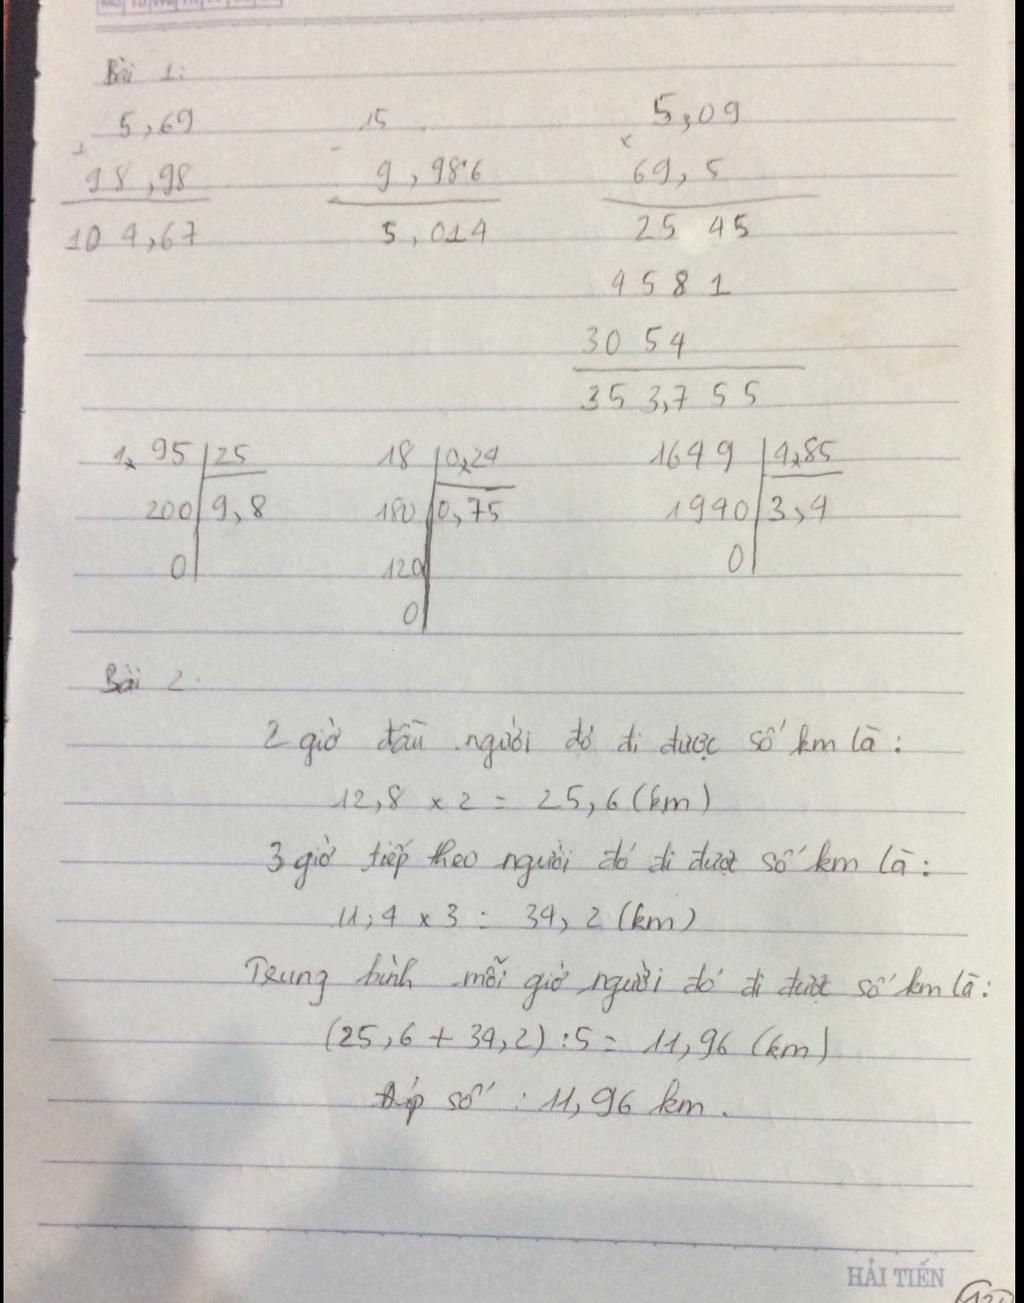 Bài 1:
5,69 15 5,09
+ 98,98 - 9,986 x 69,5
104,67 5,014 25 45
4 5 8 1
30 54
35 3,7 5 5
1,95 25 18 0,24 1649 4,85
200 9,8 180 0,75 1940 3,4
0 120 0
0
Bài 2:
2 giờ đầu người đó đi được số km là:
12,8 x 2 = 25,6 (km)
3 giờ tiếp theo người đó đi được số km là:
11,4 x 3 = 34,2 (km)
Trung bình mỗi giờ người đó đi được số km là:
(25,6 + 34,2) : 5 = 11,96 (km)
Đáp số : 11,96 km.
HẢI TIẾN